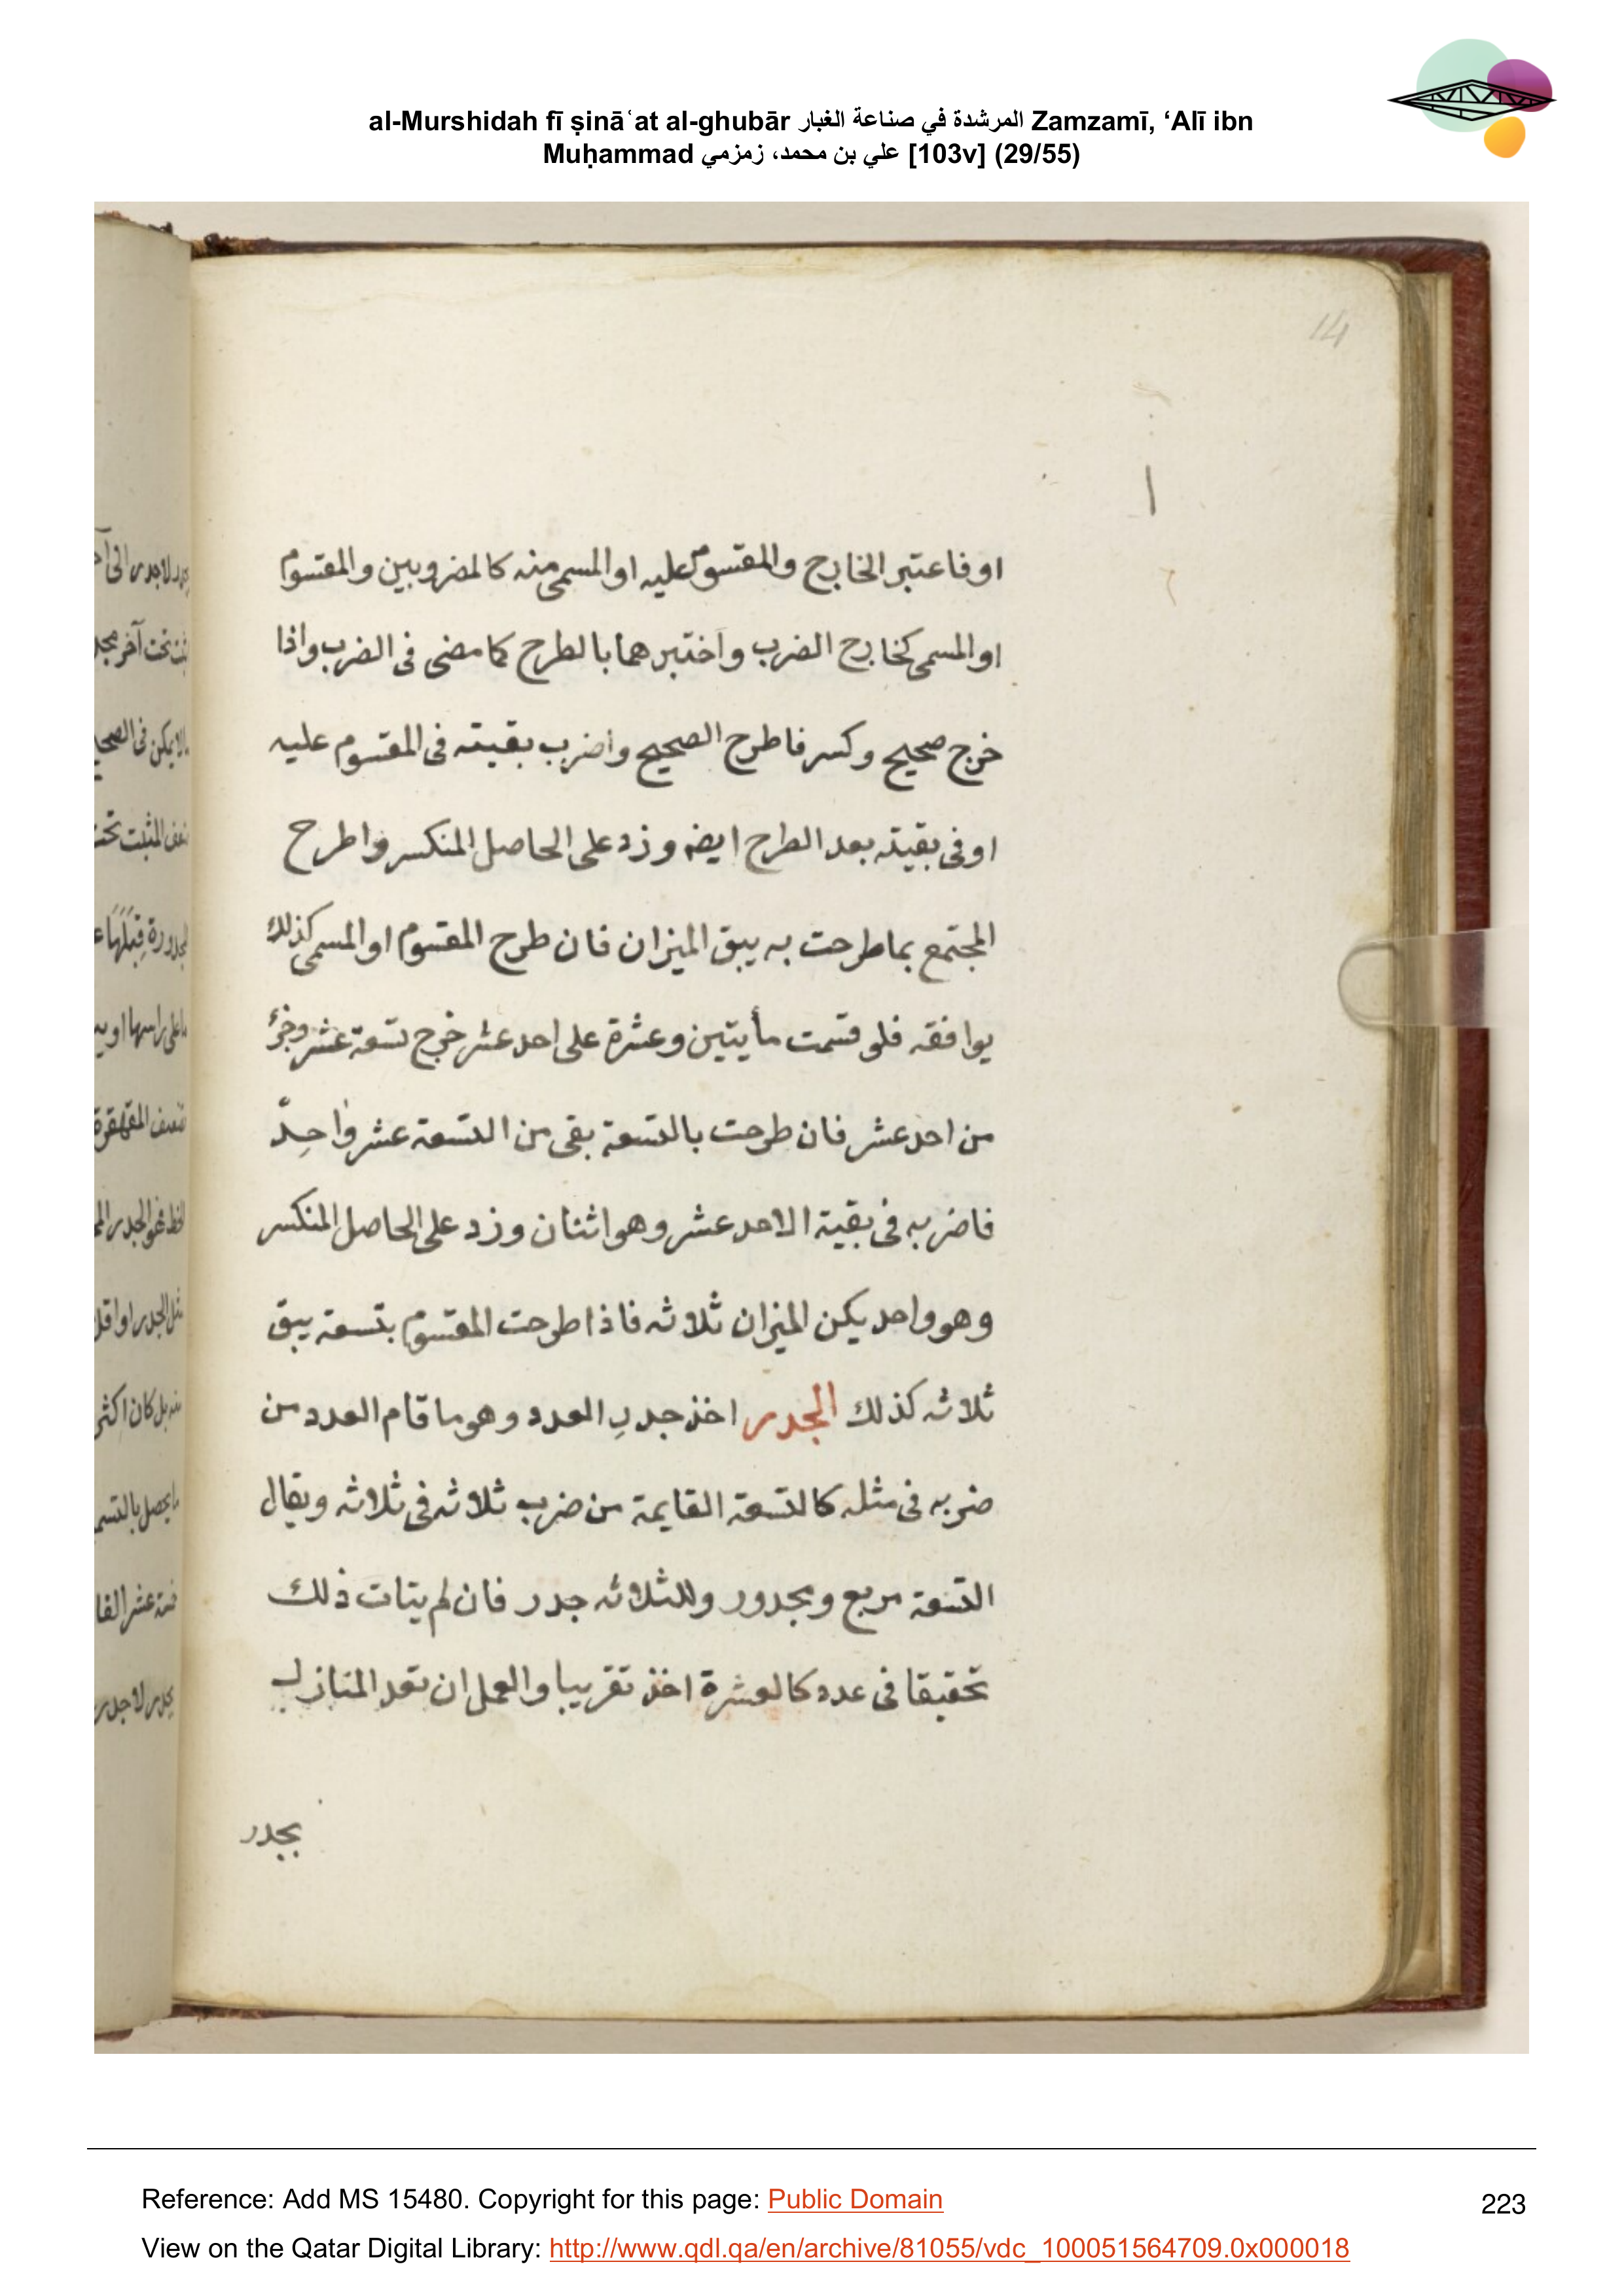 al-Murshidah fī ṣināʿat al-ghubār المرشدة في صناعة الغبار Zamzamī, ‘Alī ibn
Muḥammad علي بن محمد، زمزمي [103v] (29/55)
14
ا
اوفاعتبر الخارج والمقسوم عليه او المسمى منه كالمضروبين والمقسوم
او المسمى كخارج الضرب واختبرهما بالطرح كما مضى فى الضرب واذا
خرج صحيح وكسر فاطرح الصحيح واضرب بقيته فى المقسوم عليه
اوفى بقيته بعد الطرح ايضه وزد على الحاصل المنكسر واطرح
المجتمع بما طرحت به يبق الميزان فان طرح المقسوم او المسمى كذلك
يوافقه فلو قسمت مأيتين وعشرة على احد عشر خرج تسعة عشر وجزء
من احد عشر فان طرحت بالتسعة بقى من التسعة عشر واحِدٌ
فاضربه فى بقية الاحد عشر وهو اثنان وزد على الحاصل المنكسر
وهو واحد يكن الميزان ثلاثه فاذا طرحت المقسوم بتسعة يبق
ثلاثه كذلك الجدر اخذ جدرِ العدد وهو ما قام العدد من
ضربه فى مثله كالتسعة القايمة من ضرب ثلاثه فى ثلاثه ويقال
التسعة مربع ومجدور وللثلاثه جدر فان لم يتات ذلك
تحقيقا فى عدد كالعشرة اخذ تقريبا والعمل ان تعد المنازل
بجدر
Reference: Add MS 15480. Copyright for this page: Public Domain
223
View on the Qatar Digital Library: http://www.qdl.qa/en/archive/81055/vdc_100051564709.0x000018